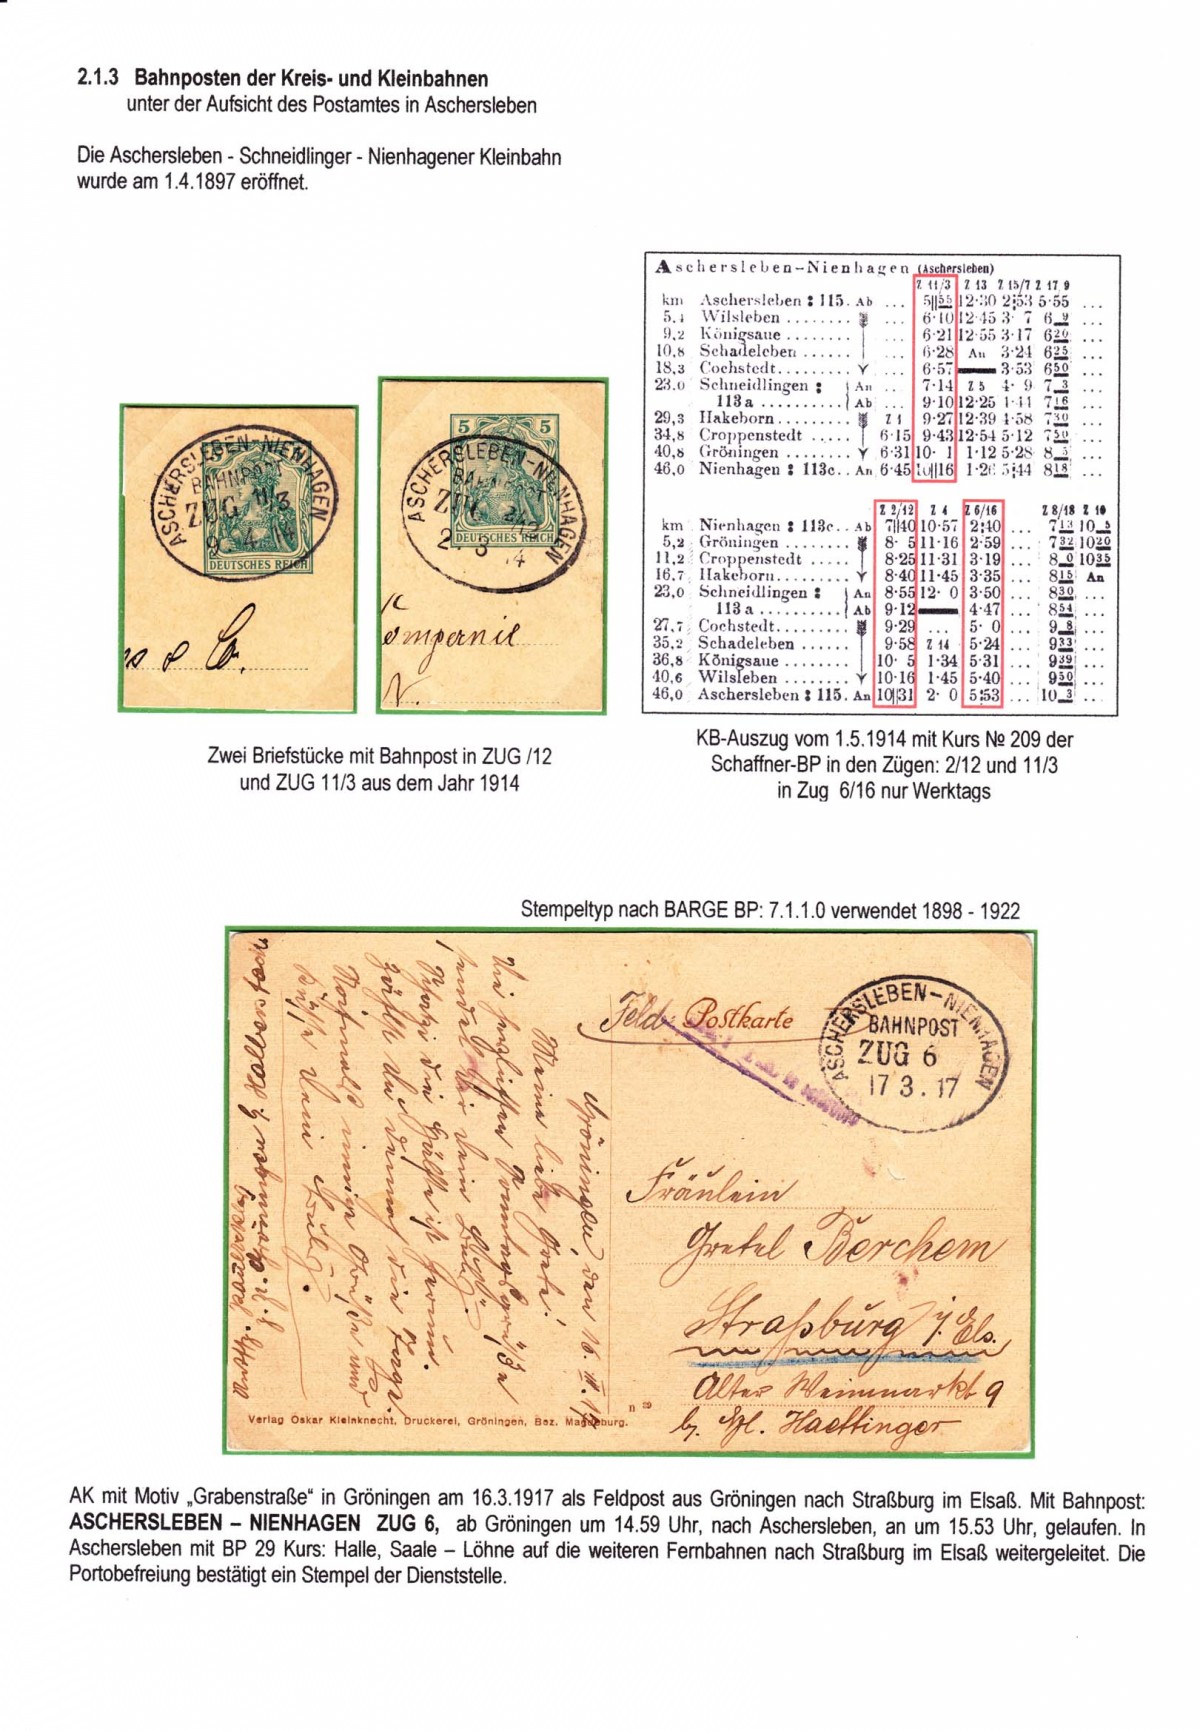 2.1.3 Bahnposten der Kreis- und Kleinbahnen
unter der Aufsicht des Postamtes in Aschersleben
Die Aschersleben - Schneidlinger - Nienhagener Kleinbahn
wurde am 1.4.1897 eröffnet.
ASCHERSLEBEN-NIENHAGEN
BAHNPOST
ZUG 11/3
9. 4. 14
DEUTSCHES REICH
5 5
ASCHERSLEBEN-NIENHAGEN
BAHNPOST
ZUG 2/12
2. 3 14
DEUTSCHES REICH
Zwei Briefstücke mit Bahnpost in ZUG /12
und ZUG 11/3 aus dem Jahr 1914
Aschersleben-Nienhagen (Aschersleben)
Z 11/3 Z 13 Z 15/7 Z 17 9
km Aschersleben : 115. Ab ... 5||55 12·30 2:53 5·55 ...
5,1 Wilsleben ........ ... 6·10 12·45 3· 7 6 9 ...
9,2 Königsaue ........ ... 6·21 12·55 3·17 6 20 ...
10,8 Schadeleben ...... ... 6·28 An 3·24 6 25 ...
18,3 Cochstedt......... ... 6·57 3·53 6 50 ...
23,0 Schneidlingen : An ... 7·14 Z 5 4· 9 7 3 ...
113a .......... Ab ... 9·10 12·25 4·41 7 16 ...
29,3 Hakeborn ........ Z 1 9·27 12·39 4·58 7 30 ...
34,8 Croppenstedt ..... 6·15 9·43 12·54 5·12 7 50 ...
40,8 Gröningen ....... 6·31 10· 1 1·12 5·28 8 5 ...
46,0 Nienhagen : 113c.. An 6·45 10||16 1·26 5:44 8 18 ...
Z 2/12 Z 4 Z 6/16 Z 8/18 Z 10
km Nienhagen : 113c.. Ab 7||40 10·57 2:40 ... 7 13 10 5
5,2 Gröningen ........ 8· 5 11·16 2·59 ... 7 32 10 20
11,2 Croppenstedt ...... 8·25 11·31 3·19 ... 8 0 10 35
16,7 Hakeborn......... 8·40 11·45 3·35 ... 8 15 An
23,0 Schneidlingen : An 8·55 12· 0 3·50 ... 8 30 ...
113a .......... Ab 9·12 4·47 ... 8 54 ...
27,7 Cochstedt......... 9·29 ... 5· 0 ... 9 8 ...
35,2 Schadeleben ...... 9·58 Z 14 5·24 ... 9 33 ...
36,8 Königsaue ........ 10· 5 1·34 5·31 ... 9 39 ...
40,6 Wilsleben ........ 10·16 1·45 5·40 ... 9 50 ...
46,0 Aschersleben : 115. An 10||31 2· 0 5:53 ... 10 3 ...
KB-Auszug vom 1.5.1914 mit Kurs № 209 der
Schaffner-BP in den Zügen: 2/12 und 11/3
in Zug 6/16 nur Werktags
Stempeltyp nach BARGE BP: 7.1.1.0 verwendet 1898 - 1922
Feld Postkarte
ASCHERSLEBEN-NIENHAGEN
BAHNPOST
ZUG 6
17 3. 17
Gröningen, den 16. III. 17
Meine liebe Grete!
Fräulein
Gretel Berchem
Straßburg i. Els.
Alter Weinmarkt 9
b. Haettinger
n 29
Verlag Oskar Kleinknecht, Druckerei, Gröningen, Bez. Magdeburg.
AK mit Motiv „Grabenstraße“ in Gröningen am 16.3.1917 als Feldpost aus Gröningen nach Straßburg im Elsaß. Mit Bahnpost:
ASCHERSLEBEN – NIENHAGEN ZUG 6, ab Gröningen um 14.59 Uhr, nach Aschersleben, an um 15.53 Uhr, gelaufen. In
Aschersleben mit BP 29 Kurs: Halle, Saale – Löhne auf die weiteren Fernbahnen nach Straßburg im Elsaß weitergeleitet. Die
Portobefreiung bestätigt ein Stempel der Dienststelle.